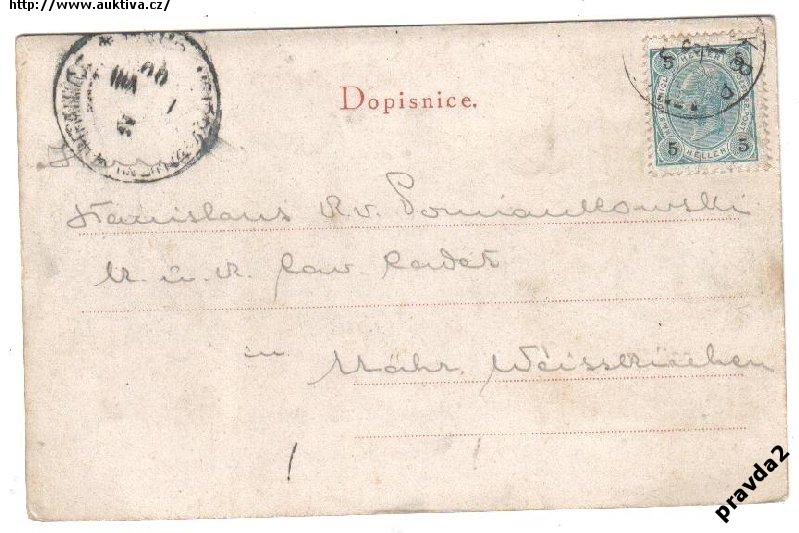 http://www.auktiva.cz/
Dopisnice.
5 5
5 HELLER 5
Stanislaus R. v. Pomiankowski
k. u. k. Cav. Cadet
in Mähr. Weisskirchen
pravda2